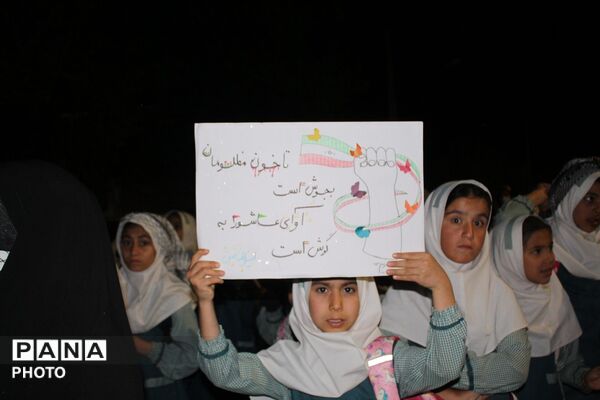 تا خون مظلومان
بجوش است
آوای عاشورا به
گوش است
PANA
PHOTO